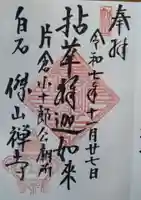 奉拝
令和七年十一月廿七日
拈華釋迦如来
片倉小十郎公廟所
白石 傑山禅寺